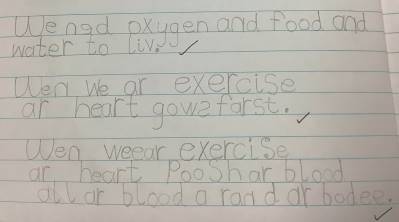 We need oxygen and food and
water to live.
Wen we ar exercise
ar heart gows farst.
Wen weear exercise
ar heart Poosh ar blood
all ar blood a rand ar bodee.